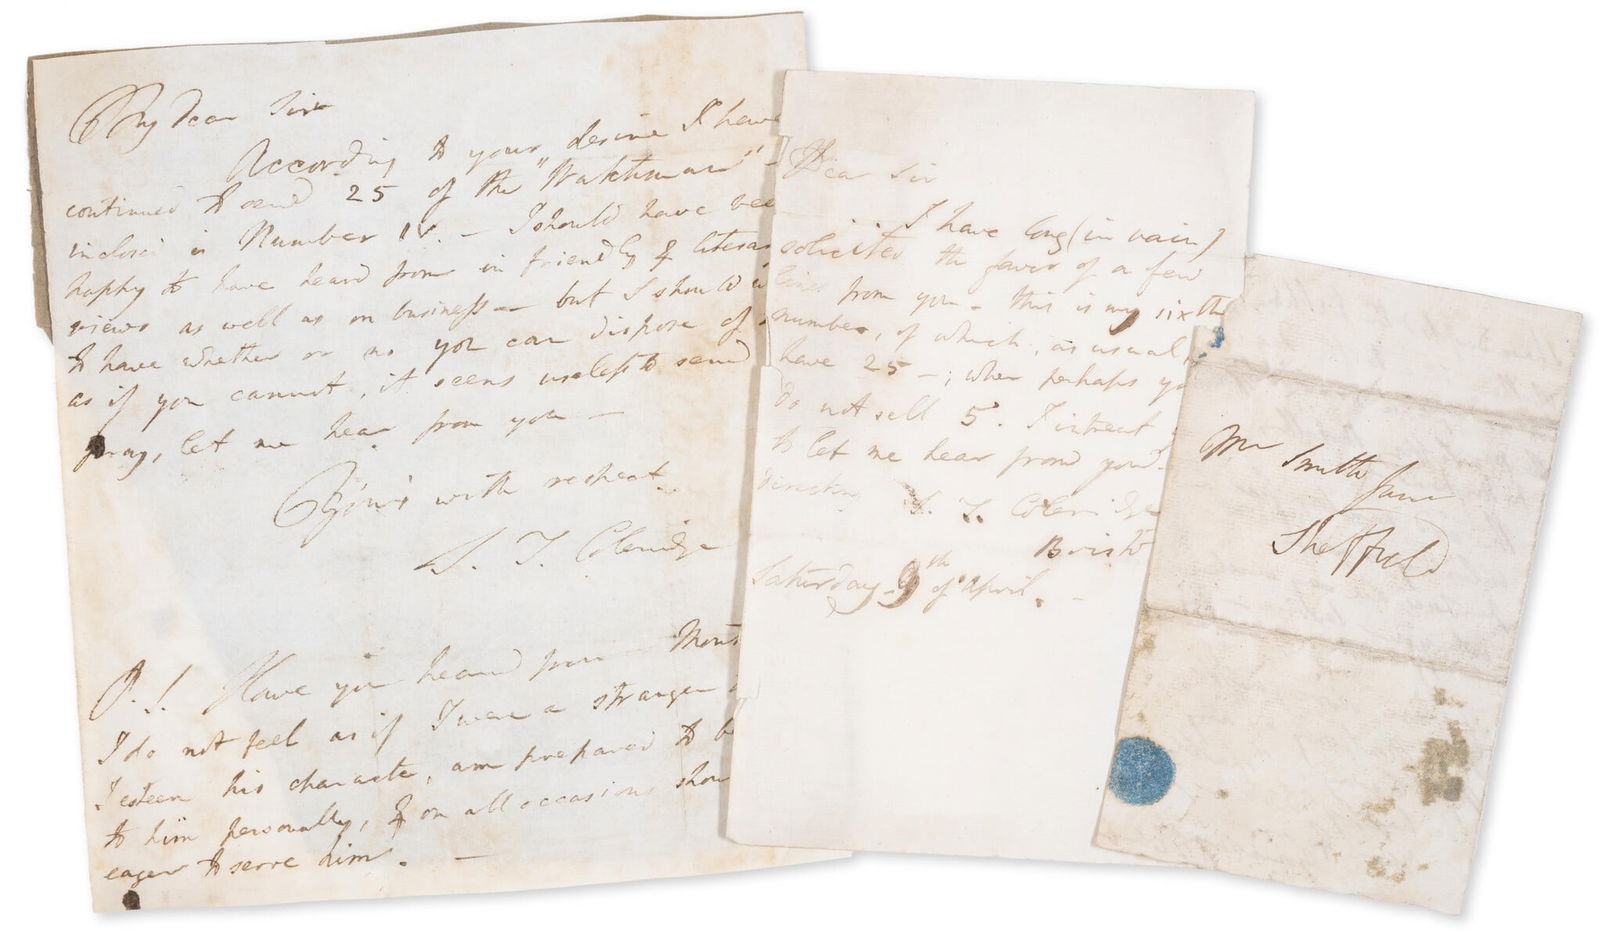 My dear Sir
According to your desire I have
continued to send 25 of the "Watchman" -
inclosed is Number IV. - I should have bee
happy to have heard from in friendly & litera
views as well as on business - but I should
to have whether or no you can dispose of
as if you cannot, it seems useless to send
pray, let me hear from you -
Yours with respect
S. T. Coleridge
P.S. Have you heard from Mont
I do not feel as if I were a stranger
I esteem his character, am prepared to b
to him personally, & on all occasions shou
eager to serve him. -
Dear Sir
I have long (in vain)
solicited the favor of a few
lines from you - this is my sixth
number, of which, as usual
have 25 -; when perhaps yo
do not sell 5. I intreat
to let me hear from you
directing S. T. Coleridge
Bristol
Saturday 9th of April. -
Mr Smith Junr
Sheffield